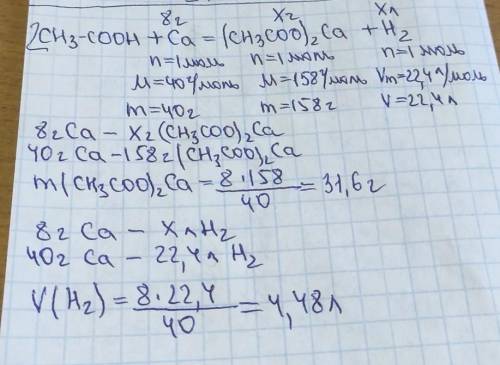 8г Xг Xл
2CH₃-COOH + Ca = (CH₃COO)₂Ca + H₂
n=1моль n=1моль n=1моль
M=40г/моль M=158г/моль Vm=22,4л/моль
m=40г m=158г V=22,4л
8г Ca – Xг (CH₃COO)₂Ca
40г Ca – 158г (CH₃COO)₂Ca
m(CH₃COO)₂Ca = 8·158/40 = 31,6г
8г Ca – Xл H₂
40г Ca – 22,4л H₂
V(H₂) = 8·22,4/40 = 4,48л